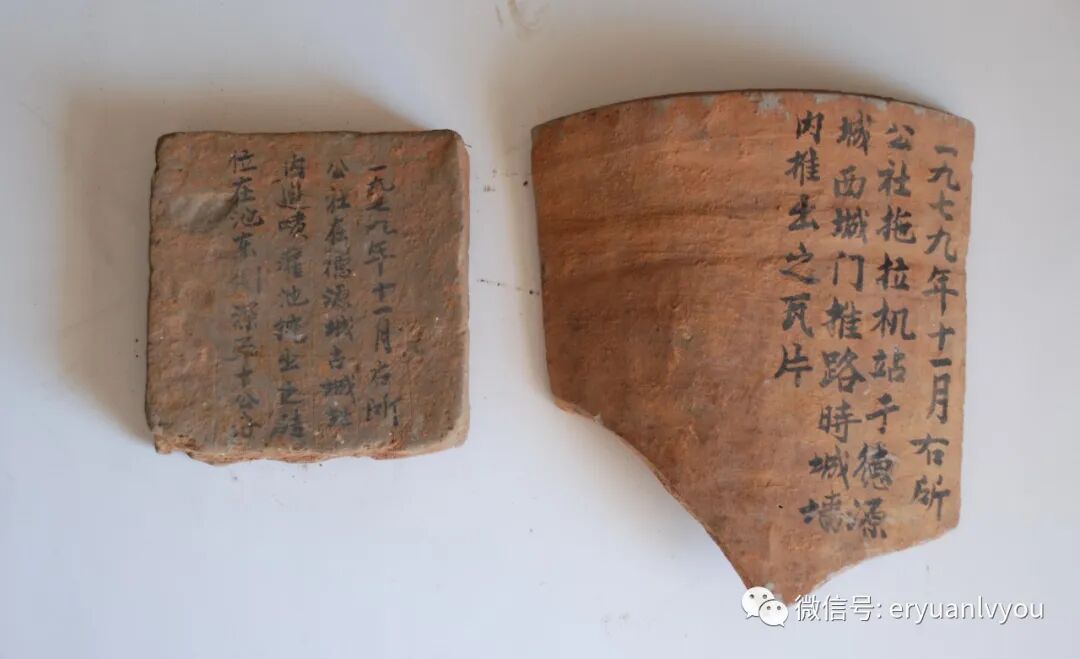 一九七九年十一月右所
公社在德源城古城址
内造喷灌池挖出之砖。
位在池东 深五十公分
一九七九年十一月右所
公社拖拉机站于德源
城西城门推路時城墙
内推出之瓦片
微信号: eryuanlvyou